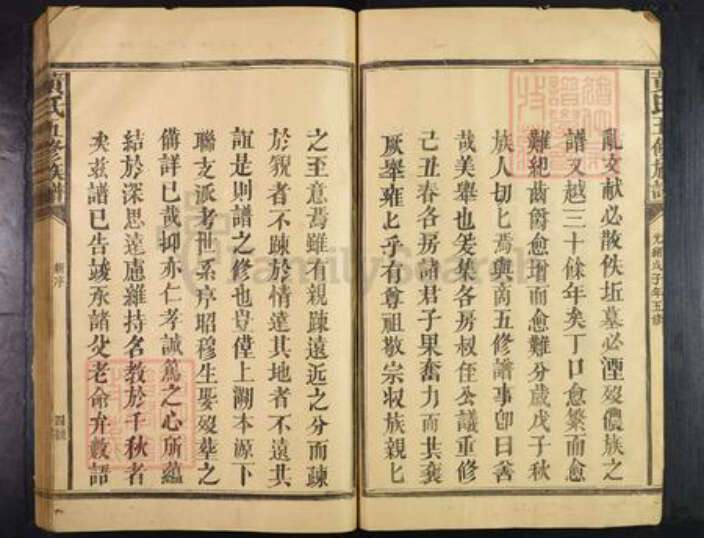 黃氏五修族譜
光緒戊子年五修
亂文献必散佚坵墓必湮殁儂族之
譜又越三十餘年矣丁口愈繁而愈
難紀齒爵愈增而愈難分歲戊子秋
族人切匕焉興商五修譜事佥曰善
哉美舉也爰集各房叔侄公議重修
己丑春各房諸君子果奮力而共襄
厥舉雍匕乎有尊祖敬宗收族親匕
之至意焉雖有親疎遠近之分而疎
於親者不疎於情遠其地者不遠其
誼是則譜之修也豈僅上溯本源下
聯支派考世系序昭穆生娶殁塟之
備詳已哉抑亦仁孝誠篤之心所蘊
結於深思遠慮維持名教於千秋者
矣茲譜已告竣承諸父老命弁數語
黃氏五修族譜
新序
FamilySearch